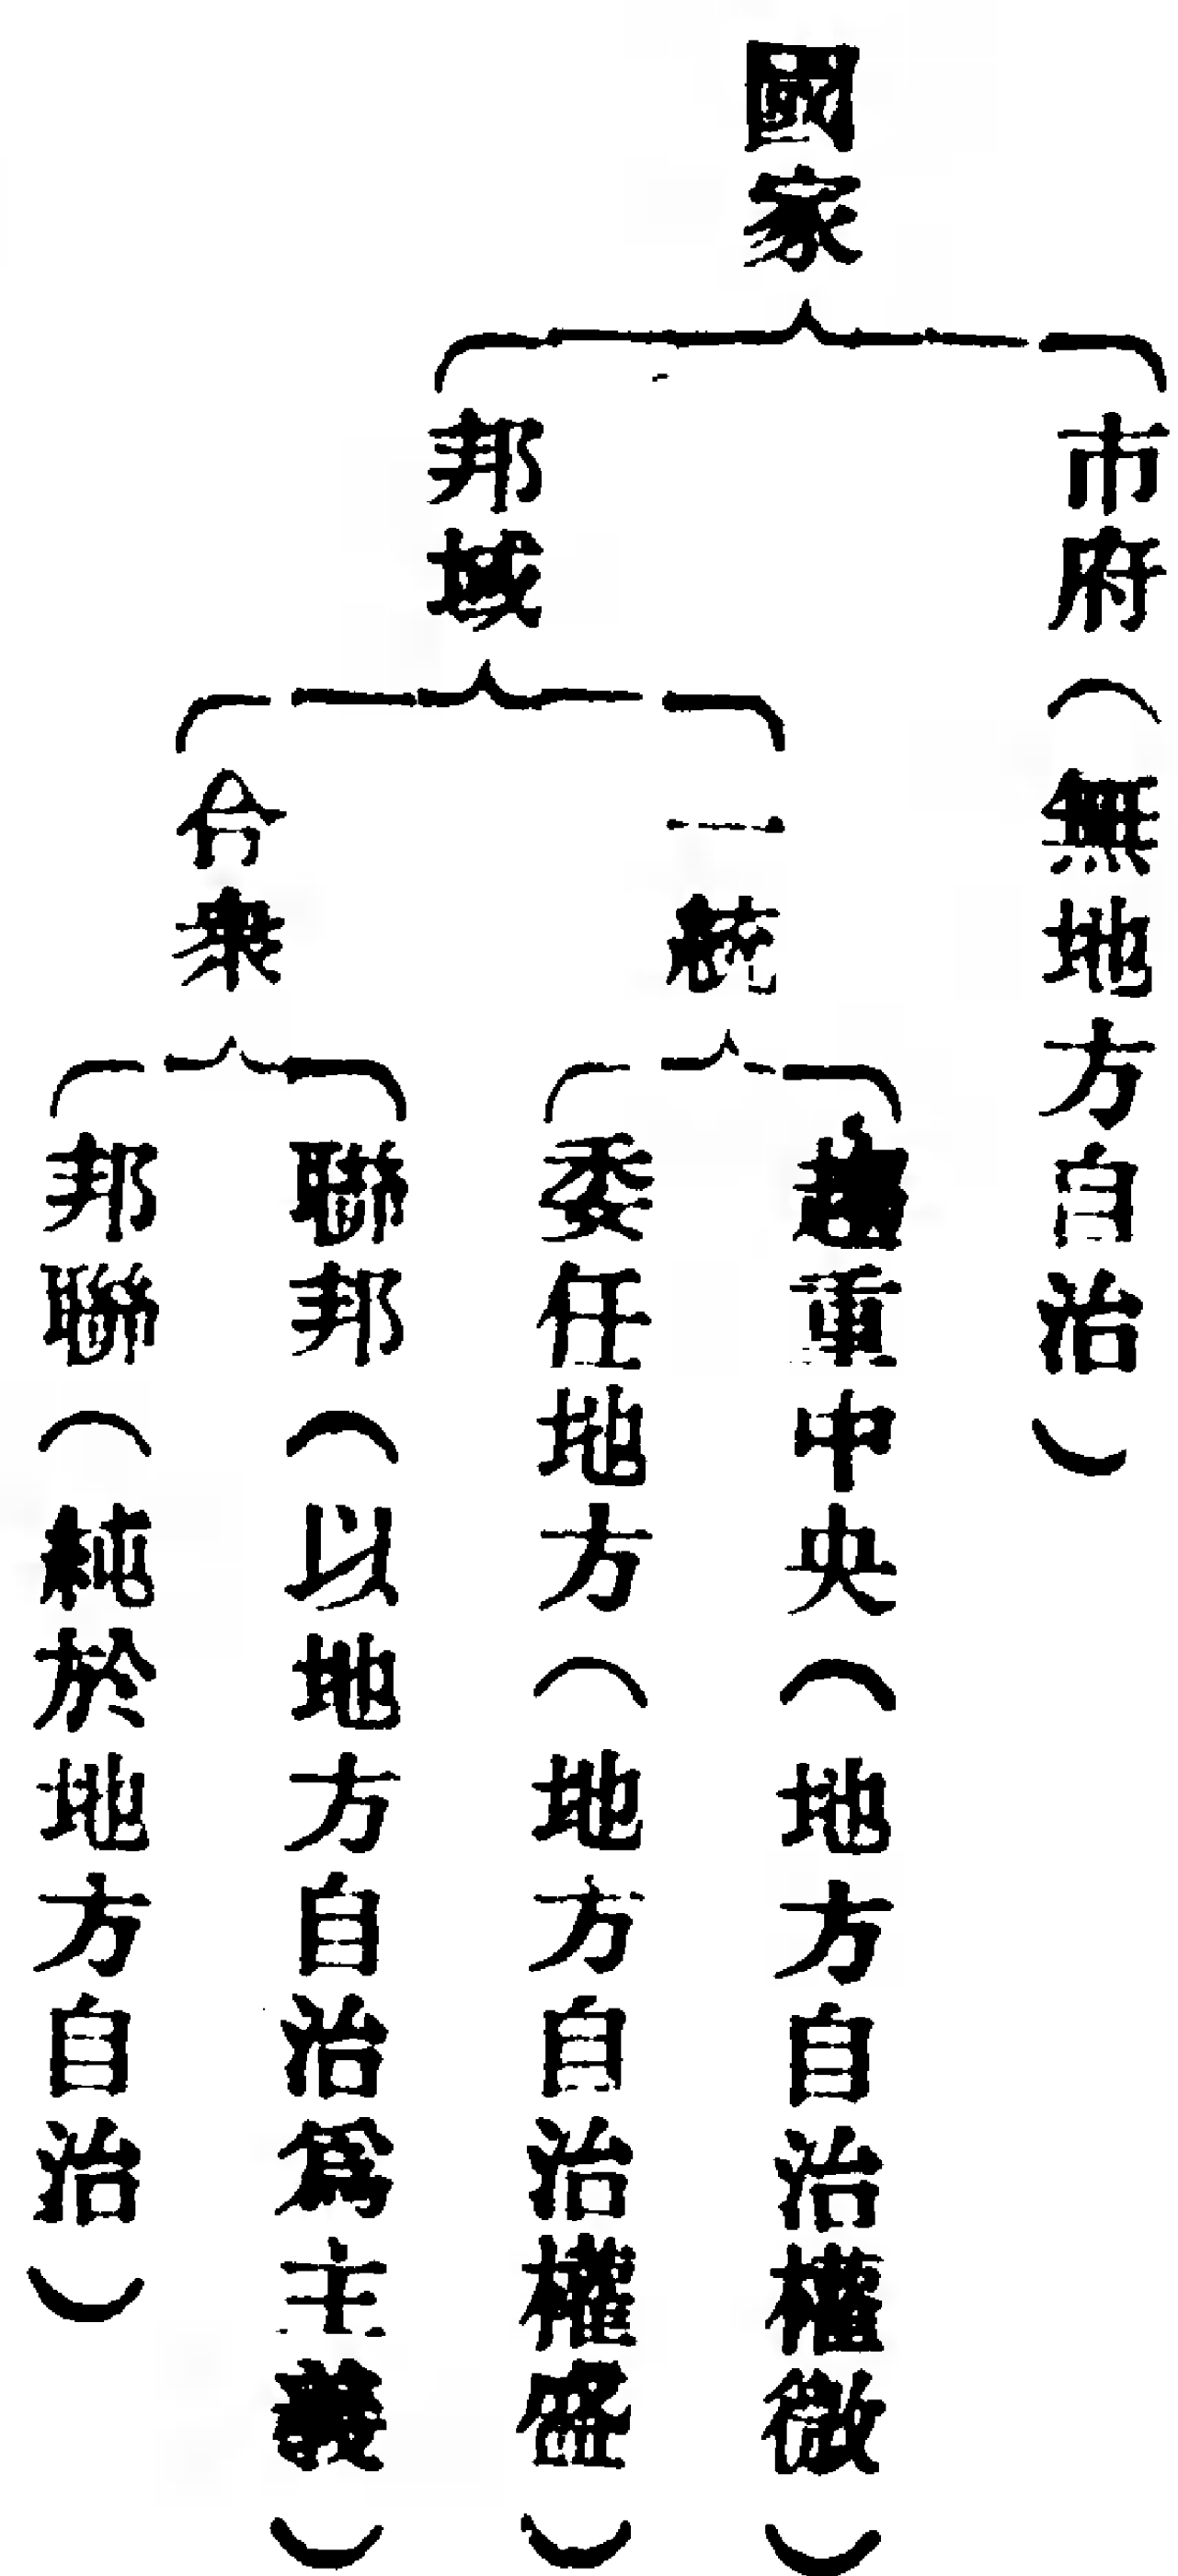 國家
市府（無地方自治）
邦域
一統
趨重中央（地方自治權微）
委任地方（地方自治權盛）
合衆
聯邦（以地方自治爲主義）
邦聯（純於地方自治）